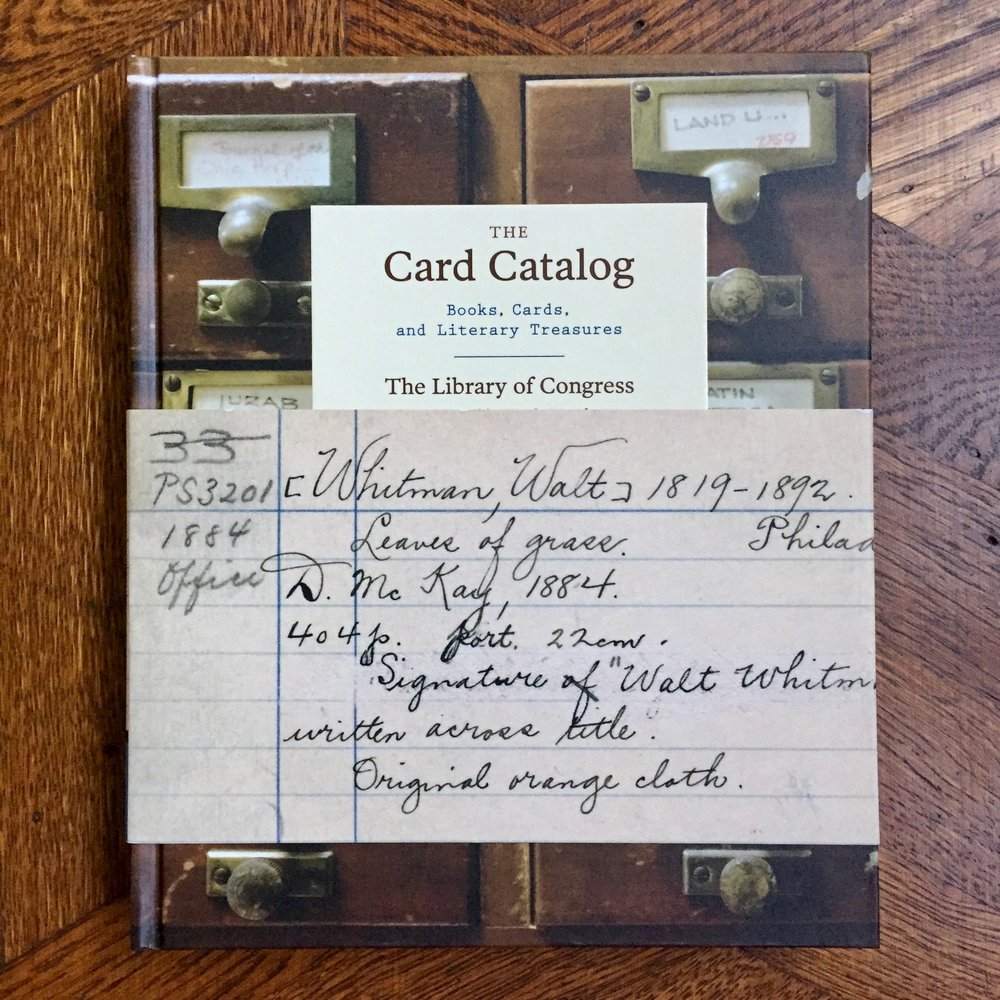 LAND U...
THE
Card Catalog
Books, Cards,
and Literary Treasures
The Library of Congress
33
PS3201
1884
Office
[Whitman, Walt] 1819-1892.
Leaves of grass. Philad
D. Mc Kay, 1884.
404p. port. 22cm.
Signature of "Walt Whitm
written across title.
Original orange cloth.